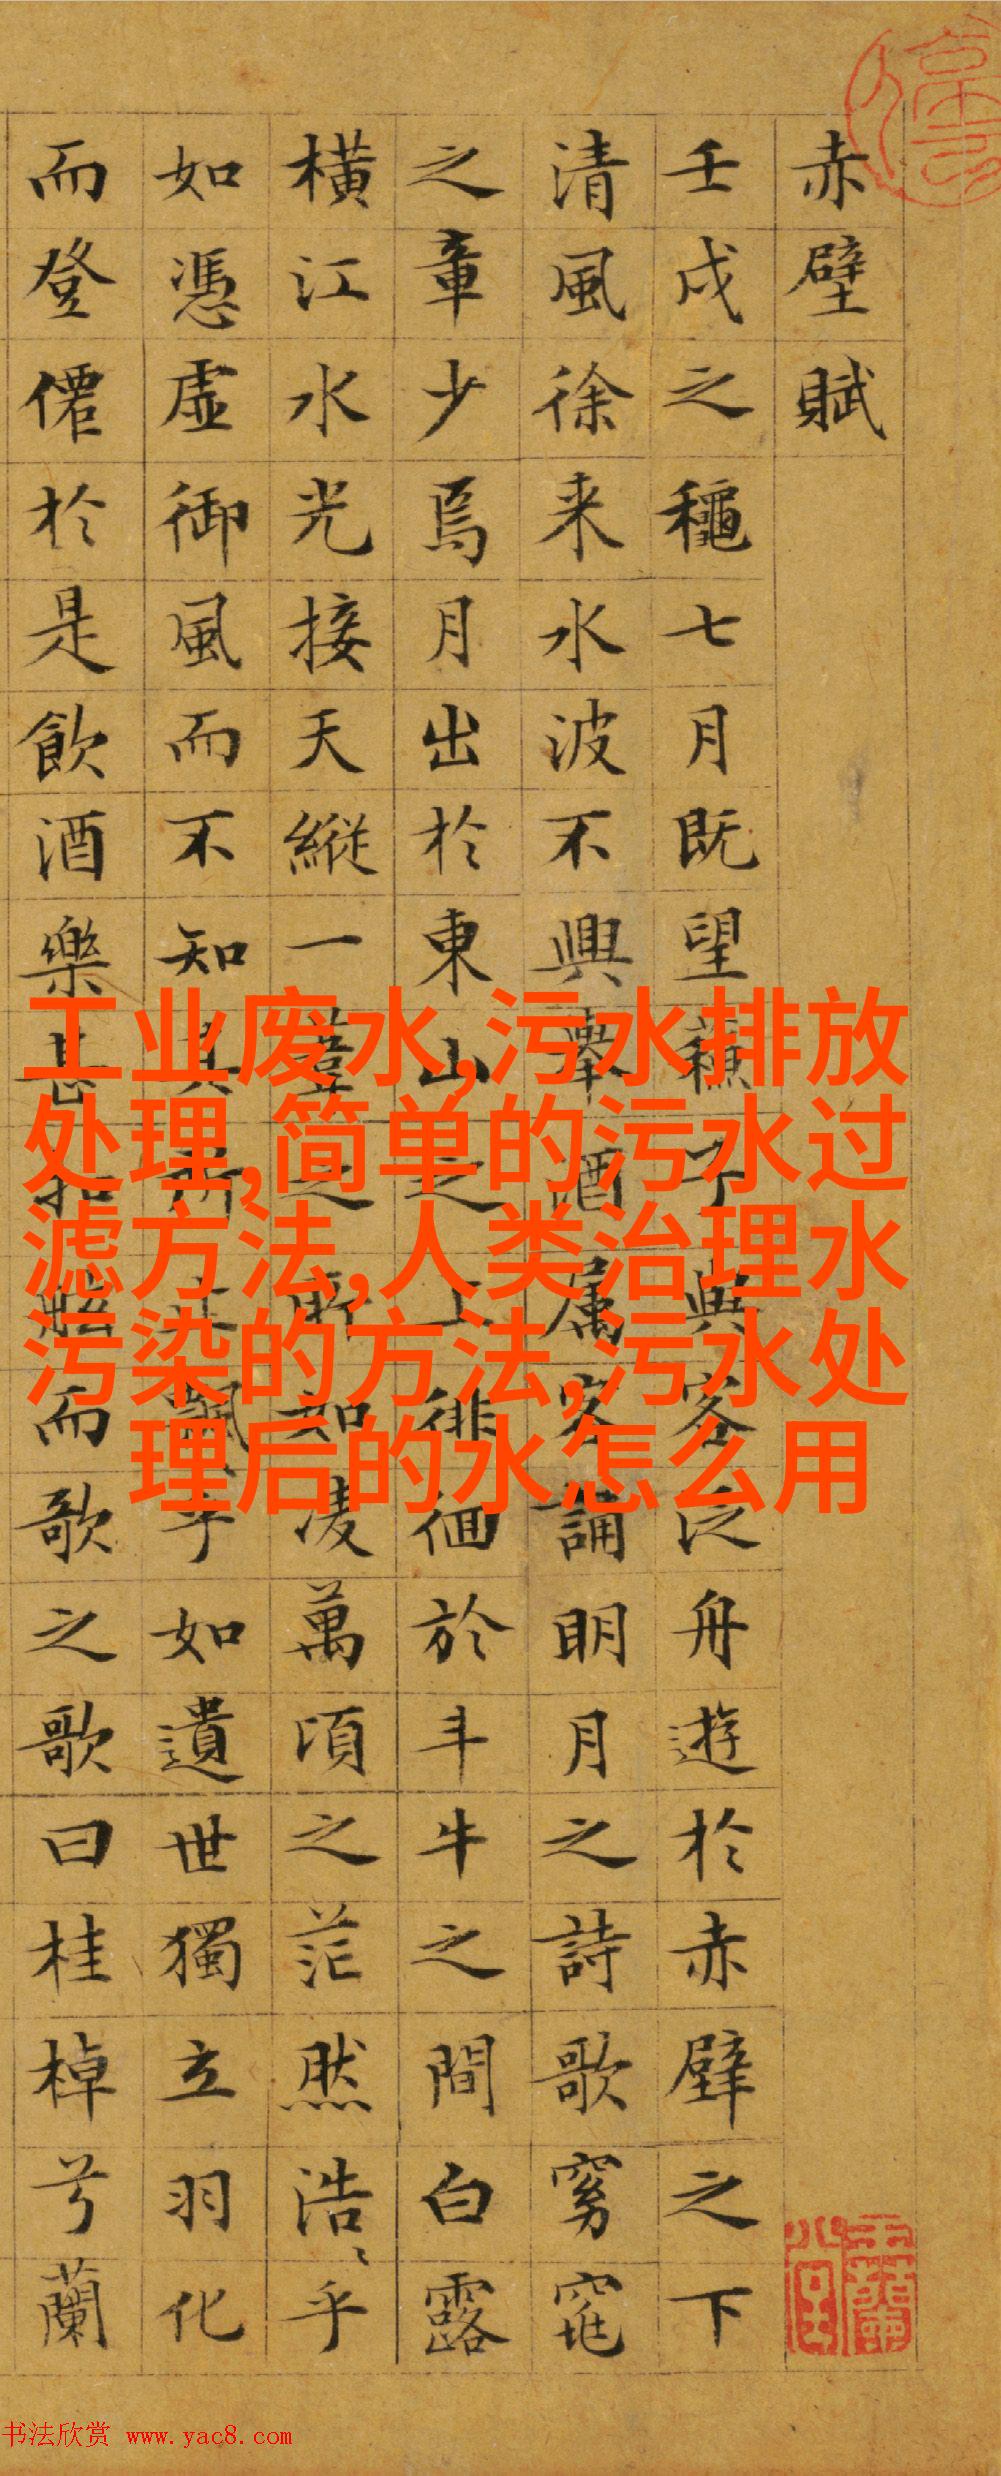 赤壁賦
壬戌之穐七月既望蘇子與客泛舟遊於赤壁之下
清風徐来水波不興舉酒属客誦明月之詩歌窈窕
之章少焉月出於東山之上徘徊於斗牛之間白露
橫江水光接天縱一葦之所如凌萬頃之茫然浩〻乎
如憑虛御風而不知其所止飄乎如遺世獨立羽化
而登僊於是飲酒樂甚扣舷而歌之歌曰桂棹兮蘭
工业废水,污水排放
处理,简单的污水过
滤方法,人类治理水
污染的方法,污水处
理后的水怎么用
书法欣赏 www.yac8.com